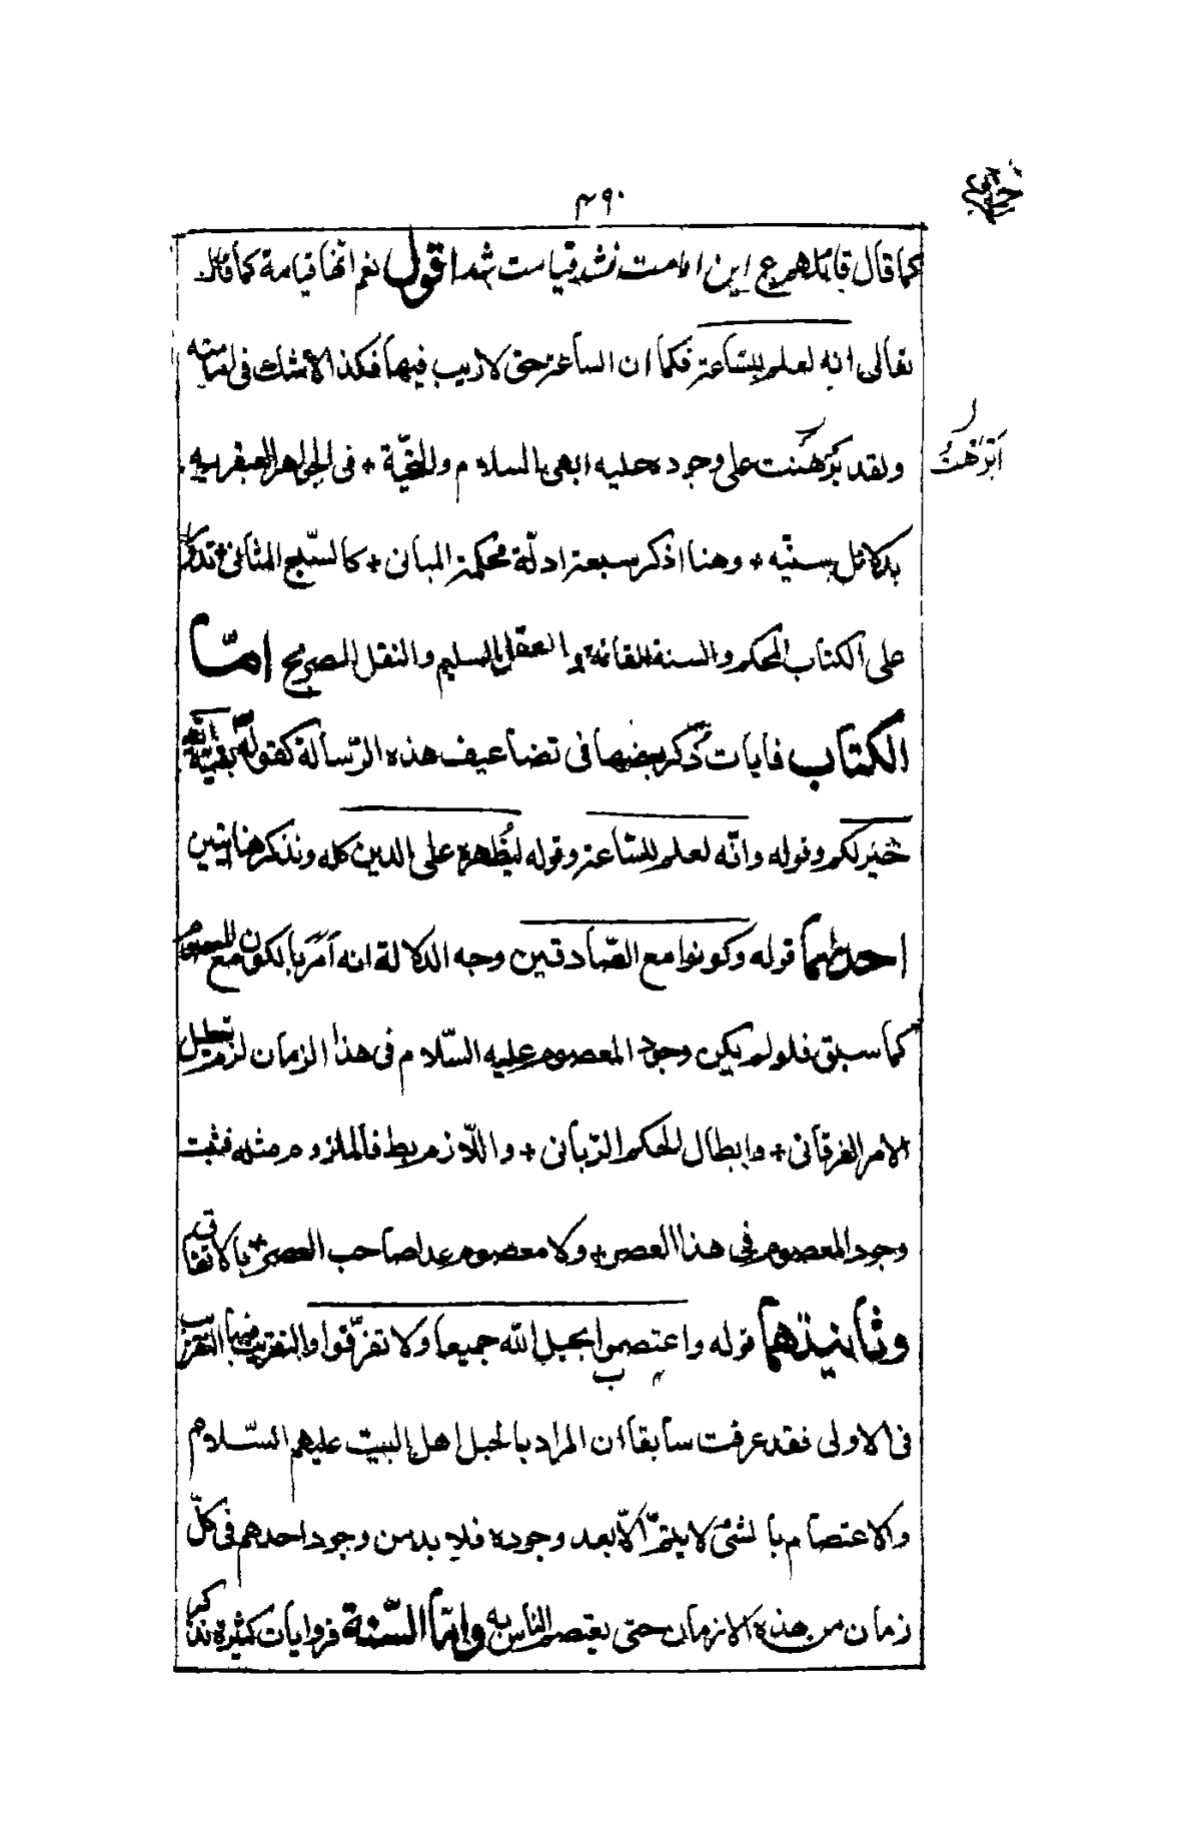 ٤٩٠
كما قال قائلهم ع اين امامت نشد قيامت شد اقول نعم انها قيامة كما قال
تعالى انه لعلم للساعة فكما ان الساعة حق لا ريب فيها فكذا لا شك فى امامته
ولقد برهنت على وجوده عليه ابهى السلام والتحيّة + فى الجواهر العبقريه
بدلائل سنيّه + وهنا اذكر سبعة ادلّة محكمة المبانى + كالسّبع المثانى + تدل
على الكتاب المحكم والسنة القائمة والعقل السليم والنقل الصريح امّا
الكتاب فايات ذكر بعضها فى تضاعيف هذه الرّسالة كقوله بقيّة الله
خير لكم وقوله وانّه لعلم للسّاعة وقوله ليُظهره على الدين كله ونذكر هنا ايتين
احدهما قوله وكونوا مع الصّادقين وجه الدلالة انه اَمَرَ بالكون مع المعصوم
كما سبق فلو لم يكن وجود المعصوم عليه السّلام فى هذا الزمان لزم تعطيل
الامر الفرقانى + وابطال الحكم الرّبانى + واللّازم بط فالملزوم مثله فثبت
وجود المعصوم فى هذا العصر + ولا معصوم عدا صاحب العصر + بالاتفاق
وثانيتهما قوله واعتصموا بحبل الله جميعا ولا تفرّقوا والتقريب فيها التقريب
فى الاولى فقد عرفت سابقا ان المراد بالحبل اهل البيت عليهم السّلام
والاعتصام بالشئ لا يتمّ الّا بعد وجوده فلا بد من وجود احدهم فى كلّ
زمان من هذه الازمان حتى يعتصم الناس به وامّا السّنة فروايات كثيرة نذكر